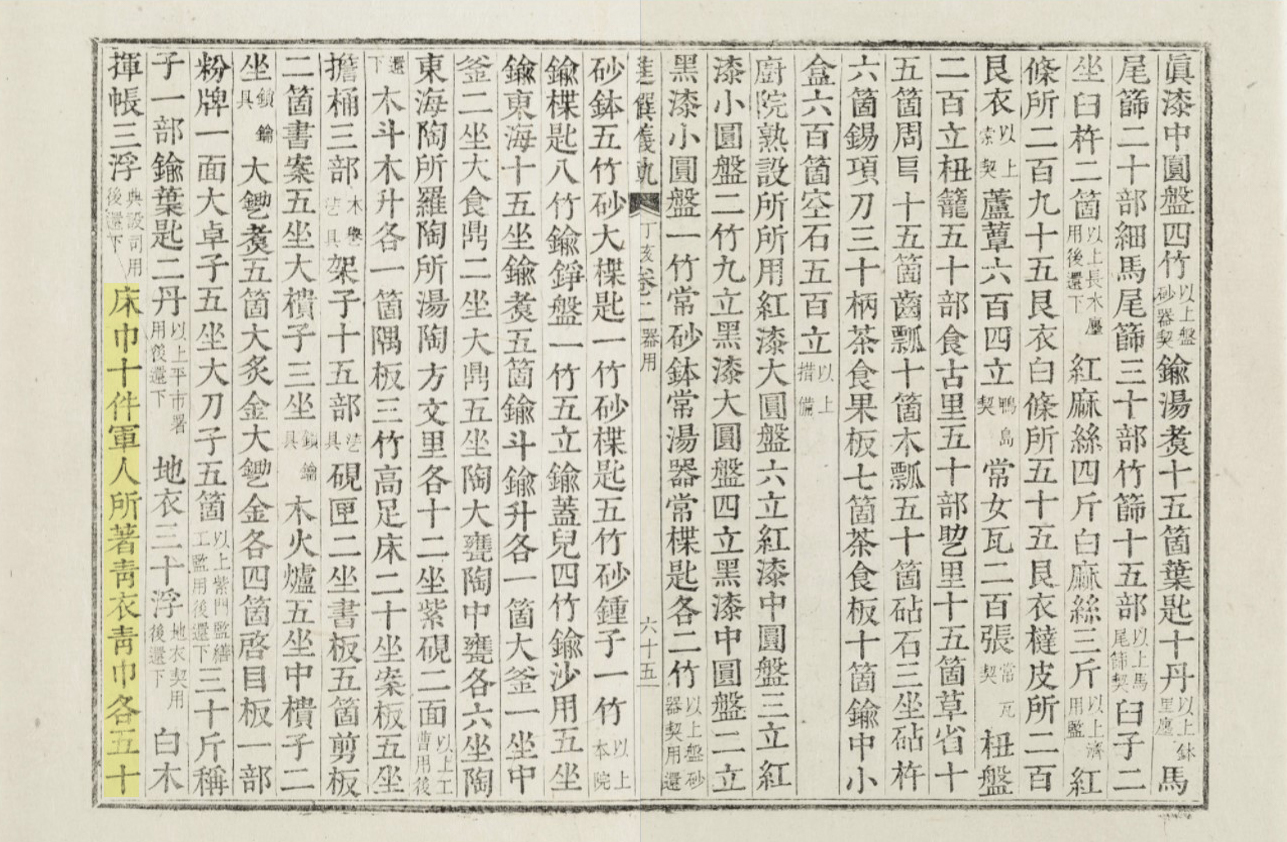 眞漆中圓盤四竹以上盤砂器契鍮湯煑十五箇葉匙十丹以上鉢里廛馬
尾篩二十部細馬尾篩三十部竹篩十五部以上馬尾篩契臼子二
坐臼杵二箇以上長木廛用後還下紅麻絲四斤白麻絲三斤以上濟用監紅
條所二百九十五艮衣白條所五十五艮衣㯓皮所二百
艮衣以上常契蘆蕈六百四立鴨島契常女瓦二百張常瓦契杻盤
二百立杻籠五十部食古里五十部乶里十五箇草省十
五箇周巨十五箇齒瓢十箇木瓢五十箇砧石三坐砧杵
六箇錫項刀三十柄茶食果板七箇茶食板十箇鍮中小
盒六百箇空石五百立以上措備
廚院熟設所所用紅漆大圓盤六立紅漆中圓盤三立紅
漆小圓盤二竹九立黑漆大圓盤四立黑漆中圓盤二立
黑漆小圓盤一竹常砂鉢常湯器常楪匙各二竹以上盤砂器契用還
進饌儀軌 丁亥 卷二 器用 六十五
砂鉢五竹砂大楪匙一竹砂楪匙五竹砂鍾子一竹以上本院
鍮楪匙八竹鍮錚盤一竹五立鍮蓋兒四竹鍮沙用五坐
鍮東海十五坐鍮煑五箇鍮斗鍮升各一箇大釜一坐中
釜二坐大食鼎二坐大鼎五坐陶大甕陶中甕各六坐陶
東海陶所羅陶所湯陶方文里各十二坐紫硯二面以上工曹用後
還下木斗木升各一箇隅板三竹高足床二十坐案板五坐
擔桶三部木擧乼具架子十五部乼具硯匣二坐書板五箇剪板
二箇書案五坐大樻子三坐鎖鑰具木火爐五坐中樻子二
坐鎖鑰具大鋤煑五箇大炙金大鋤金各四箇啓目板一部
粉牌一面大卓子五坐大刀子五箇以上紫門監繕工監用後還下三十斤稱
子一部鍮葉匙二丹以上平市署用後還下地衣三十浮地衣契用後還下白木
揮帳三浮典設司用後還下床巾十件軍人所著靑衣靑巾各五十